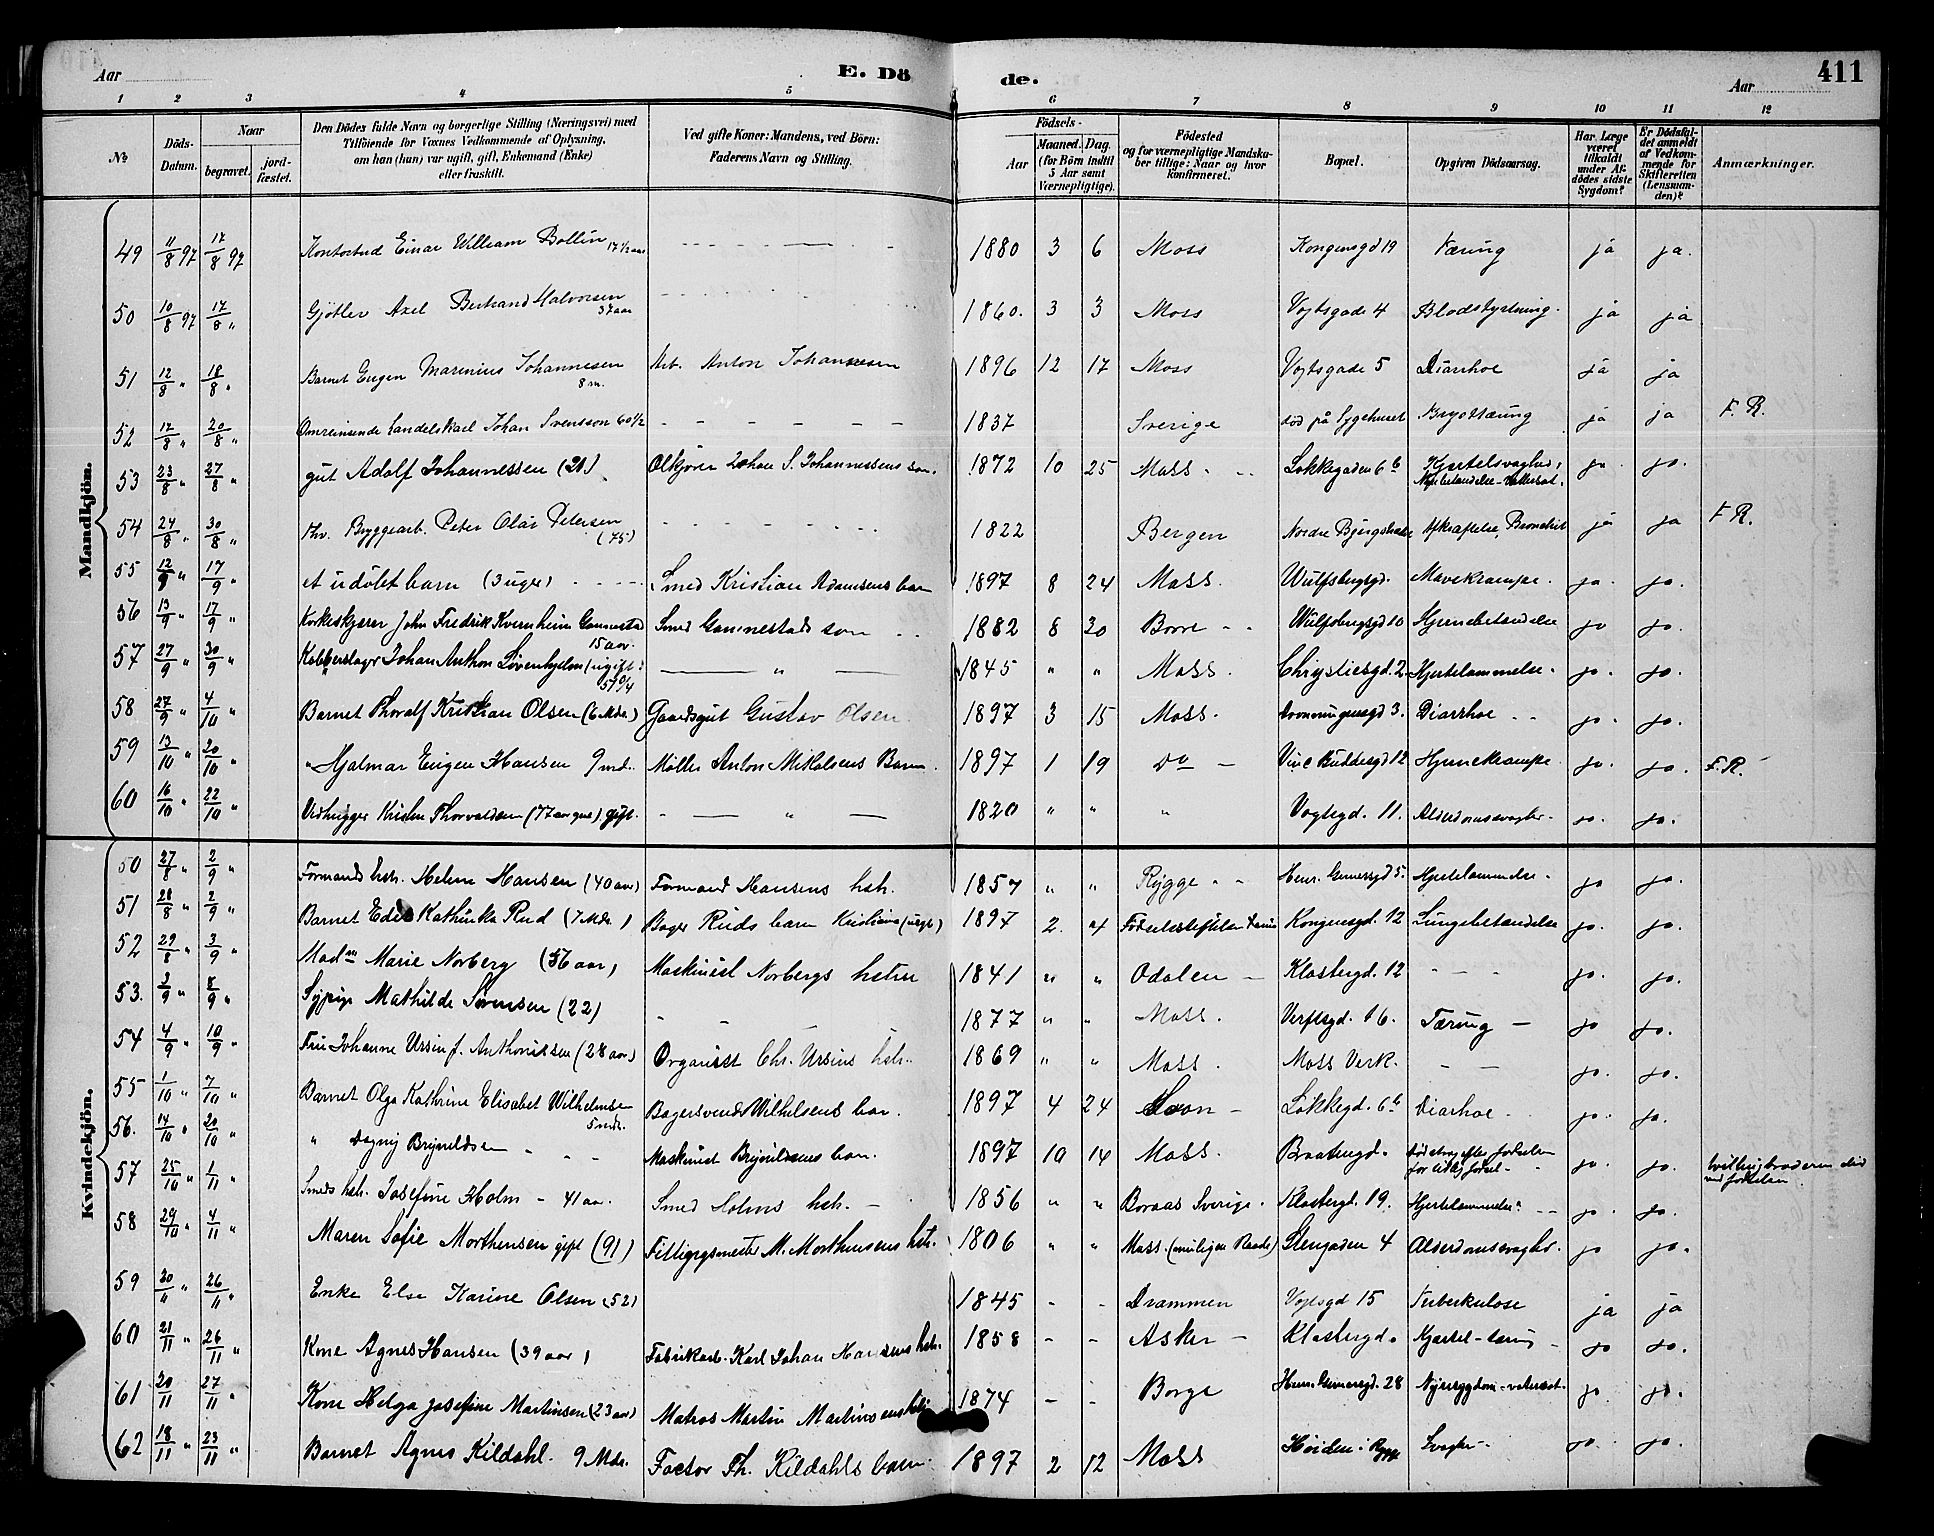 Aar
E. Dö
de.
Aar
411
1 2 3 4 5 6 7 8 9 10 11 12
No
Döds-Datum.
Naar
begravet.
jord-fæstet.
Den Dödes fulde Navn og borgerlige Stilling (Næringsvei) med
Tilföiende for Voxnes Vedkommende af Oplysning,
om han (hun) var ugift, gift, Enkemand (Enke)
eller fraskilt.
Ved gifte Koner: Mandens, ved Börn:
Faderens Navn og Stilling.
Födsels-
Aar
Maaned. Dag.
(for Börn indtil
5 Aar samt
Værnepligtige).
Födested
og for værnepligtige Mandska-
ber tillige: Naar og hvor
konfirmeret.
Bopæl.
Opgiven Dödsaarsag.
Har Læge
været
tilkaldt
under Af-
dödes sidste
Sygdom?
Er Dödsfal-
det anmeldt
af Vedkom-
mende for
Skifteretten
(Lensman-
den)?
Anmærkninger.
Mandkjön.
49 11/8 97 17/8 97 Einar William Bollin 17 1/2 aar 1880 3 6 Moss Kongensgd 19 Tæring ja ja.
50 10/8 97 17/8 " Gjötler Axel Bertrand Halvorsen 37 aar 1860. 3 3 Moss Vogtsgade 4 Blodstyrtning. ja ja
51 12/8 " 18/8 " Barnet Eugen Marinius Johannessen 8 m. Arb. Anton Johannesen 1896 12 17 Moss Vogtsgade 5 Diarrhoe ja ja
52 17/8 " 20/8 " Omreisende Handelskarl Johan Svensson 60 1/2 1837 Sverige död på Sygehuset Brysttæring ja ja F. R.
53 23/8 " 27/8 " gut Adolf Johannessen Johan S. Johannessens søn. 1872 10 25 Moss Løkkegaden 6 b Kjertelsvaghed, ja ja.
54 24/8 " 30/8 " Bryggearb. Peter Olai Petersen (75) 1822 Bergen Nordre Afkræftelse, ja ja F. R.
55 12/9 " 17/9 " et udøbt barn (3 uger) Smed Kristian Adamsens barn 1897 8 24 Moss. Wulfsbergsgd. Mavekrampe. ja. ja.
56 13/9 " 17/9 " Korkeskjærer John Fredrik Kvernheim Gannestad 15 aar. Smed Gannestads søn 1882 8 30 Borre Wulfsbergsgd 10 Hjernebetændelse ja ja.
57 27/9 " 30/9 " Kobberslager Johan Anthon Løvenhjelm (ugift) " 1845 " " Moss. Chrystiesgd. 2 Hjertelammelse. ja. ja.
58 27/9 " 4/10 " Barnet Thoralf Kristian Olsen (6 Mdr.) Gaardsgut Gustav Olsen. 1897 3 15 Moss. Dronningensgd 3. Diarrhoe ja. ja.
59 13/10 " 20/10 " " Hjalmar Eugen Hansen 9 md. Møller Anton Mikalsens Barn. 1897 1 19 Do Vinc Buddesgd 12 Hjernekrampe ja. ja. F. R.
60 16/10 " 22/10 " Vedhugger Kristen Thorvaldsen (77 aar) gift. " 1820 " " " Vogtsgd. 11. Alderdomssvaghed. ja. ja.
Kvindekjön.
50 27/8 " 2/9 " Formands hstr. Helene Hansen (40 aar) Formand Hansens hstr. 1857 " " Rygge Henr. Gernersgd 5. Hjertelammelse. ja ja.
51 28/8 " 2/9 " Barnet Kathinka Rud (7 Mdr.) Bager Ruds barn Kristiania 1897 2. Kongensgd. 12 Lungebetændelse ja. ja.
52 29/8 " 3/9 " Madm Marie Norberg (56 aar) Maskinist Norbergs hstru 1841 " " Odalen Klostergd. 12 ja. ja.
53. 3/9 " 8/9 " Sypige Mathilde Sørensen (22) 1877 " " Moss. Verftsgd. 16. Tæring ja ja.
54 4/9 " 10/9 " Fru Johanne Ursin f. Anthonisen (28 aar) Organist Chr. Ursins hstr. 1869 " " Moss. Moss Verk. ja. ja.
55 1/10 " 7/10 " Barnet Olga Kathrine Elisabet Wilhelmsen 5 mdr. Bagersvend Wilhelsens barn. 1897 4 24 Løkkegd. 6 b Diarhoe ja. ja.
56. 14/10 " 20/10 " " Dagny Brynildsen Maskinist Brynildsens barn. 1897 10 14 Moss. Braatengd. ja. ja.
57 25/10 " 1/11 " Smeds hstr. Josefine Holm 41 aar. Smed Holms hstr. 1856 " " Boraas Sverige. Klostergd. 19. Hjertelammelse ja. ja.
58 29/10 " 4/11 " Maren Sofie Morthensen gift (91) M. Morthensens hstr. 1806 " " Moss. (muligens Raade) Stengaden 4 Alderdomssvaghed. ja ja.
59 20/11 " 26/11 " Enke Else Karine Olsen (52) 1845 - - Drammen Vogtsgd 15 Tuberkulose ja ja
60 21/11 " 26/11 " Kone Agnes Hansen (39 aar) Fabrikarb. Karl Johan Hansens hstr. 1858 - - Asker Klostergd. Kjertel-tæring ja ja.
61 20/11 27/11 " Kone Helga Josefine Martinsen (23 aar) Matros Martin Martinsens 1874 - - Borge Henr. Gernersgd. 28 Nyresygdom - vatersot. ja ja.
62 18/11 " 23/11 " Barnet Agnes Kildahl. 9 Mdr. Factor Th. Kildahls barn. 1897 2 12 Moss Høiden i Rygge Svaghed. ja. ja.